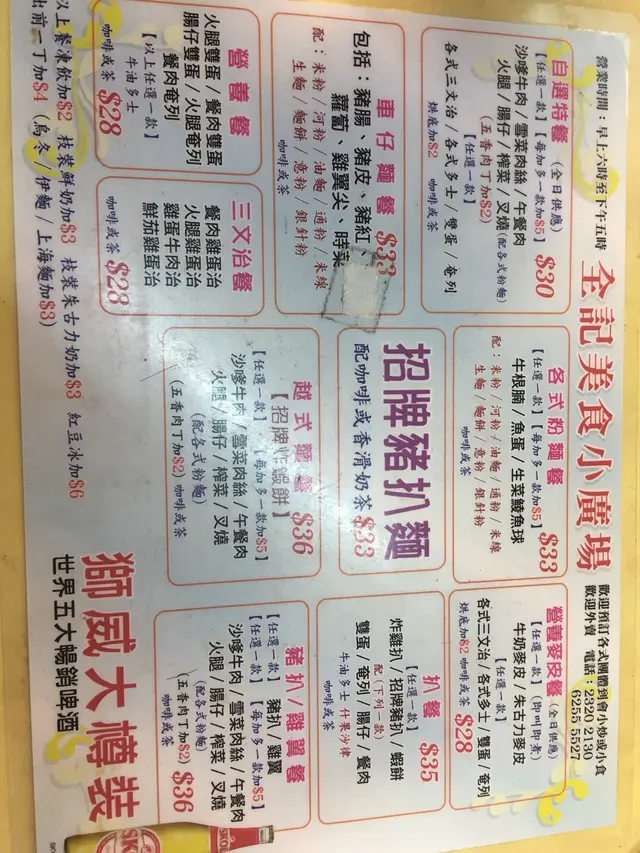 營業時間：早上六時至下午五時
全記美食小廣場
歡迎預訂各式團體到會小炒或小食
歡迎外賣 電話：2320 2130
6255 5527
自選特餐 (全日供應)
【任選一款】【每加多一款加$5】 $30
沙嗲牛肉 / 雪菜肉絲 / 午餐肉
火腿 / 腸仔 / 榨菜 / 叉燒 (配各式粉麵)
(五香肉丁加$2)
【任選一款】
各式三文治 / 各式多士 / 雙蛋 / 奄列
烘底加$2 咖啡或茶
各式粉麵餐
【任選一款】【每加多一款加$5】 $33
牛根腩 / 魚蛋 / 生菜鯪魚球
配：米粉 / 河粉 / 油麵 / 通粉 / 米線
生麵 / 麵餅 / 意粉 / 銀針粉
咖啡或茶
營養麥皮餐 (全日供應)
【任選一款】(即叫即煮)
牛奶麥皮 / 朱古力麥皮
【任選一款】
各式三文治 / 各式多士 / 雙蛋 / 奄列
烘底加$2 咖啡或茶 $28
車仔麵餐 $33
包括：豬腸、豬皮、豬紅、
蘿蔔、雞翼尖、時菜
配：米粉 / 河粉 / 油麵 / 通粉 / 米線
生麵 / 麵餅 / 意粉 / 銀針粉
咖啡或茶
招牌豬扒麵
配咖啡或香滑奶茶 $33
扒餐 $35
【任選一款】
炸雞扒 / 招牌豬扒 / 蝦餅
配 (下列一款)
雙蛋 / 奄列 / 腸仔 / 餐肉
牛油多士 什果沙律
咖啡或茶
營養餐
火腿雙蛋 / 餐肉雙蛋
腸仔雙蛋 / 火腿奄列
餐肉奄列
【以上任選一款】
牛油多士
咖啡或茶 $28
三文治餐
餐肉雞蛋治
火腿雞蛋治
雞蛋牛肉治
鮮茄雞蛋治
咖啡或茶 $28
越式麵餐 $36
【招牌炸蝦餅】
【任選一款】【每加多一款加$5】
沙嗲牛肉 / 雪菜肉絲 / 午餐肉
火腿 / 腸仔 / 榨菜 / 叉燒
(配各式粉麵)
(五香肉丁加$2) 咖啡或茶
豬扒 / 雞翼餐
【任選一款】 豬扒 / 雞翼
【任選一款】【每加多一款加$5】
沙嗲牛肉 / 雪菜肉絲 / 午餐肉
火腿 / 腸仔 / 榨菜 / 叉燒
(配各式粉麵)
(五香肉丁加$2) $36
咖啡或茶
以上餐凍飲加$2 枝裝鮮奶加$3 枝裝朱古力奶加$3 紅豆冰加$6
出前一丁加$4 (烏冬 / 伊麵 / 上海麵加$3)
獅威大樽裝
世界五大暢銷啤酒
SKOL